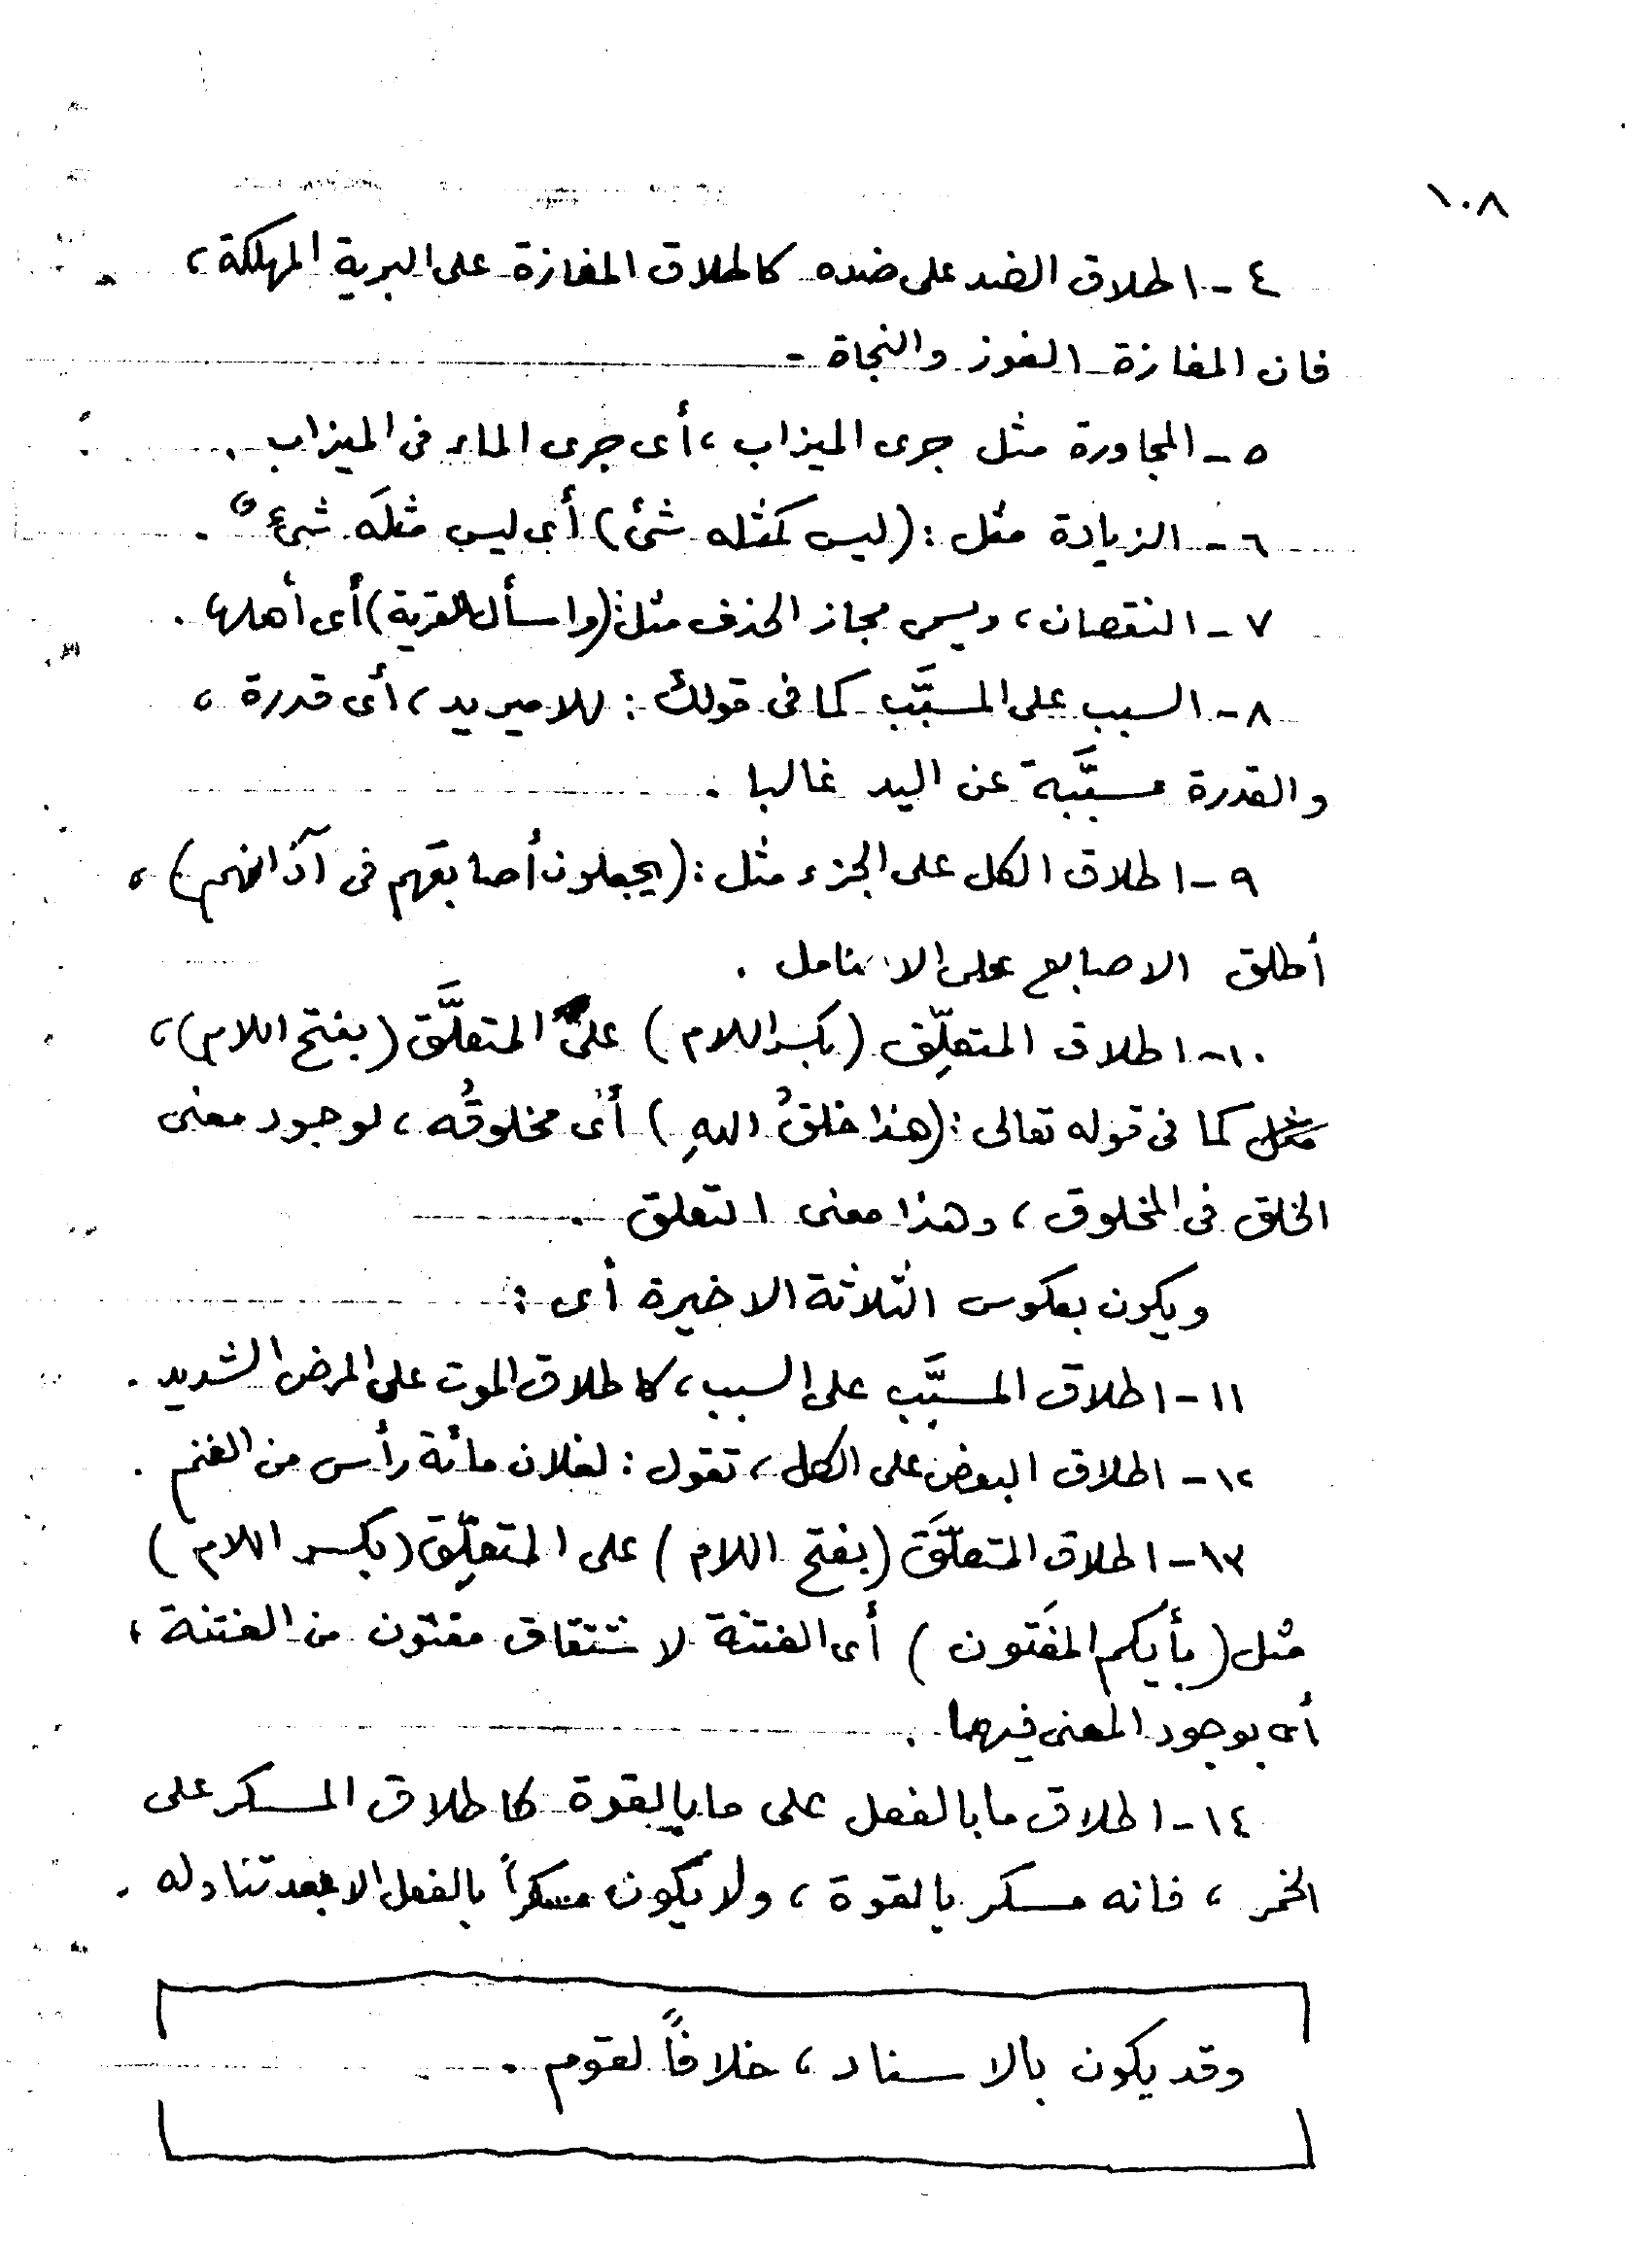 ١٠٨
٤ - اطلاق الضد على ضده كاطلاق المفازة على البرية المهلكة،
فان المفازة الفوز والنجاة -
٥ - المجاورة مثل جرى الميزاب، أى جرى الماء فى الميزاب .
٦ - الزيادة مثل : (ليس كمثله شئ) أى ليس مثلَه شىءٌ .
٧ - النقصان، ويسمى مجاز الحذف مثل: (واسأل القرية) أى أهلها .
٨ - السبب على المسبَّب كما فى قولك : للامير يد، أى قدرة ،
والقدرة مسبَّبة عن اليد غالبا .
٩ - اطلاق الكل على الجزء مثل : (يجعلون أصابعهم فى آذانهم) ،
أطلق الاصابع على الانامل .
١٠ - اطلاق المتعلِّق (بكسر اللام) على المتعلَّق (بفتح اللام)،
كما فى قوله تعالى : (هذا خلقُ اللهِ) أى مخلوقُه ، لوجود معنى
الخلق فى المخلوق ، وهذا معنى التعلق .
ويكون بعكوس الثلاثة الاخيرة أى :
١١ - اطلاق المسبَّب على السبب، كاطلاق الموت على المرض الشديد .
١٢ - اطلاق البعض على الكل ، تقول : لفلان مائة رأس من الغنم .
١٣ - اطلاق المتعلَّق (بفتح اللام) على المتعلِّق (بكسر اللام)
مثل (بأيكم المفتون) أى الفتنة لاشتقاق مفتون من الفتنة ،
أى بوجود المعنى فيهما .
١٤ - اطلاق ما بالفعل على ما بالقوة كاطلاق المسكر على
الخمر ، فانه مسكر بالقوة ، ولا يكون مسكراً بالفعل الا بعد تناوله .
وقد يكون بالاسناد ، خلافاً لقوم .